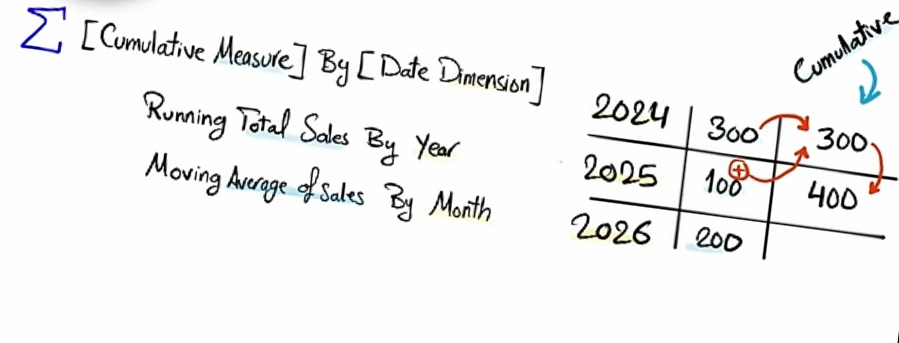 Σ [Cumulative Measure] By [Date Dimension]
Running Total Sales By Year
Moving Average of Sales By Month
Cumulative
2024 300 300
2025 100 + 400
2026 200